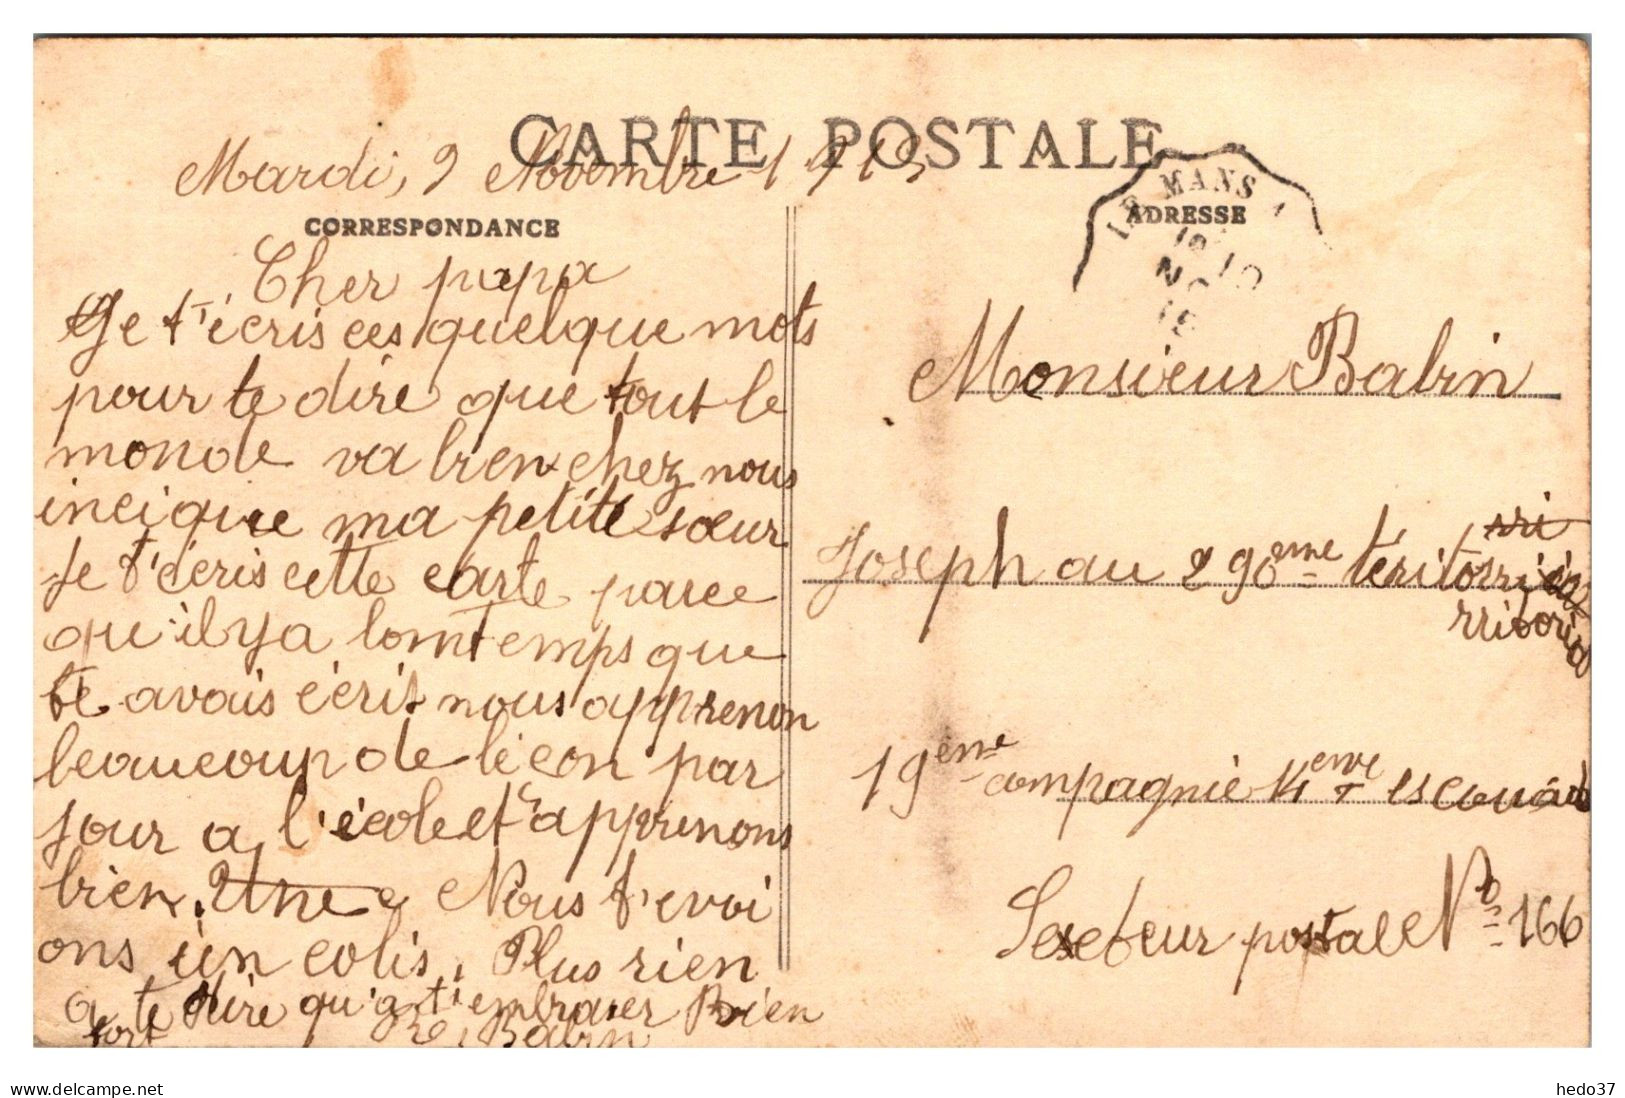 CARTE POSTALE
Mardi, 9 Novembre 1915
CORRESPONDANCE
Cher papa
Je t'écris ces quelque mots
pour te dire que tout le
monde va bien chez nous
incique ma petite sœur
Je t'écris cette carte parce
qu'il y a lomtemps que
te avais écrit nous apprenon
beaucoup de leçon par
jour a l'école et apprenons
bien. Une Nous t'evoi
ons un colis. Plus rien
a te dire qu'a t'embrasser Bien
fort Babin
LE MANS A
ADRESSE
Monsieur Babin
rri
Joseph au 290eme téritorri
rritoria
19ème compagnie 14eme escouad
Secteur postale No 166
www.delcampe.net
hedo37